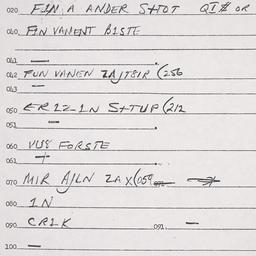 020 FIN A ANDER STOT QT# OR
040 FIN VANENT BISTE
041
042 FUN VANEN ZAJTSIR (256
043
050 ER12-1N S+TUP (212
051 —
060 VUS FORSTE
061 +
070 MIR AJLN ZAX(059
080 1N
090 CR1K 091. —
100 —